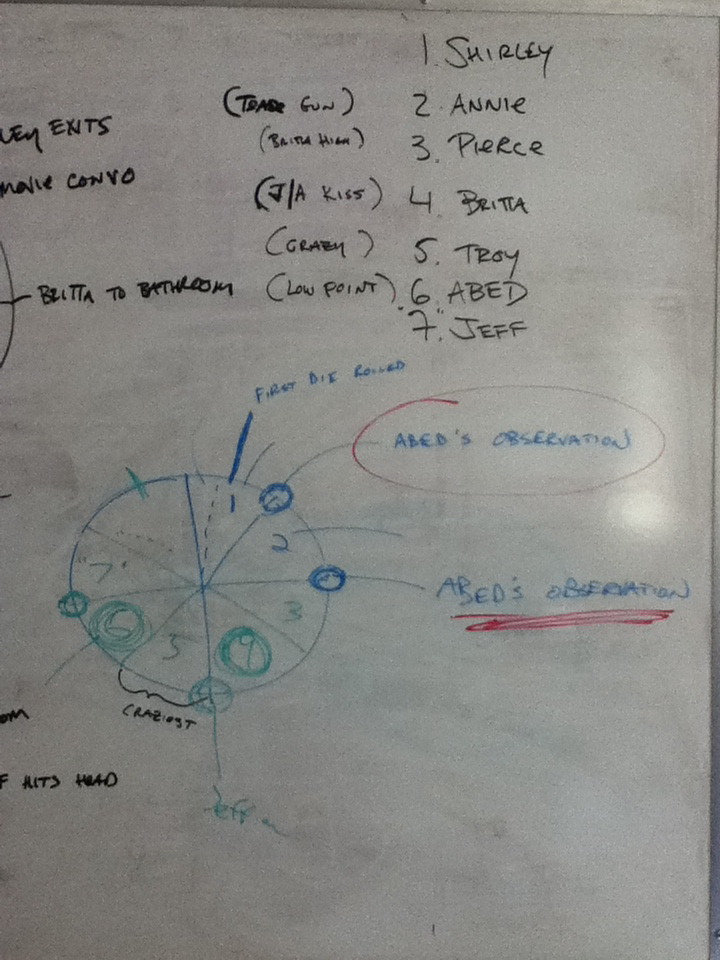 1. SHIRLEY
(TRADE GUN) 2. ANNIE
(BRITTA HIGH) 3. PIERCE
(J/A KISS) 4. BRITTA
(CRAZY) 5. TROY
(LOW POINT) 6. ABED
"7." JEFF
LEY EXITS
MOVIE CONVO
BRITTA TO BATHROOM
FIRST DIE ROLLED
ABED'S OBSERVATION
1
2
ABED'S OBSERVATION
"7"
3
6
5
4
CRAZIEST
OM
F HITS HEAD
Jeff